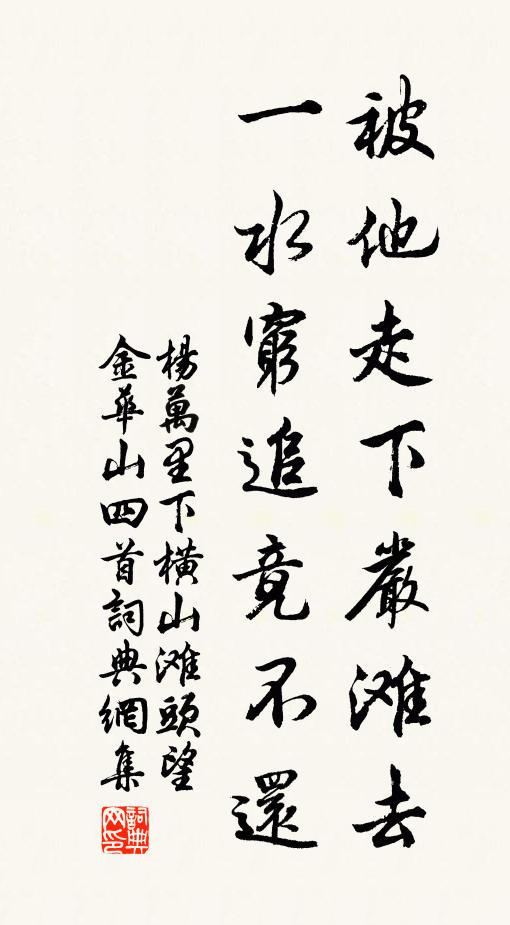 被他走下嚴滩去
一水窮追竟不還
楊萬里下横山滩頭望
金華山四首詞典網集
詞典
网印